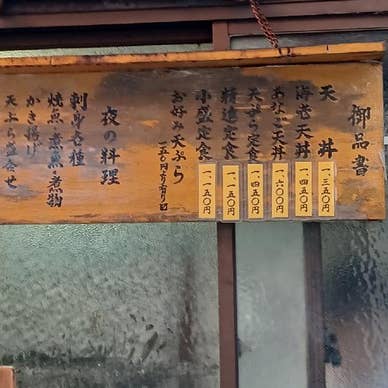 御品書
天丼 一、三五〇円
海老天丼 一、四五〇円
あなご天丼 一、六〇〇円
天ぷら定食 一、四五〇円
精進定食 一、一五〇円
小盛定食 一、一〇〇円
お好み天ぷら 一五〇円より有り〼
夜の料理
刺身各種
焼魚・煮魚・煮物
かき揚げ
天ぷら盛合せ